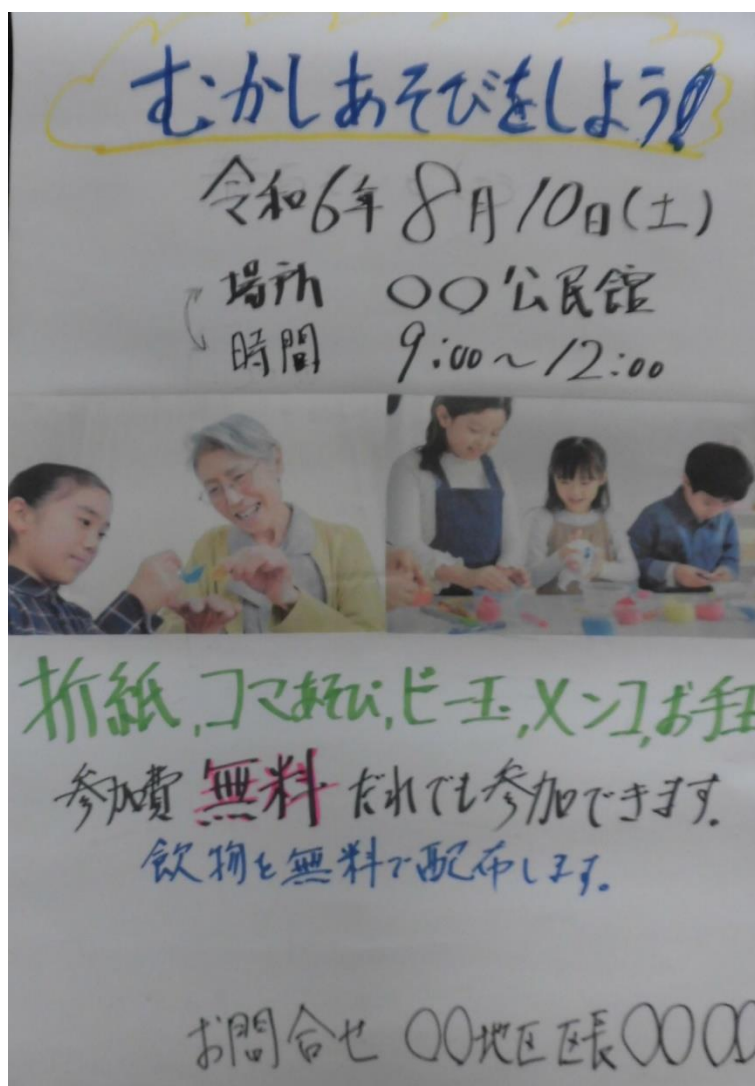 むかしあそびをしよう!
令和6年 8月10日(土)
場所 〇〇公民館
時間 9:00〜12:00
折紙,コマあそび,ビー玉,メンコ,お手玉
参加費 無料 だれでも参加できます.
飲物を無料で配布します。
お問合せ 〇〇地区区長〇〇〇〇